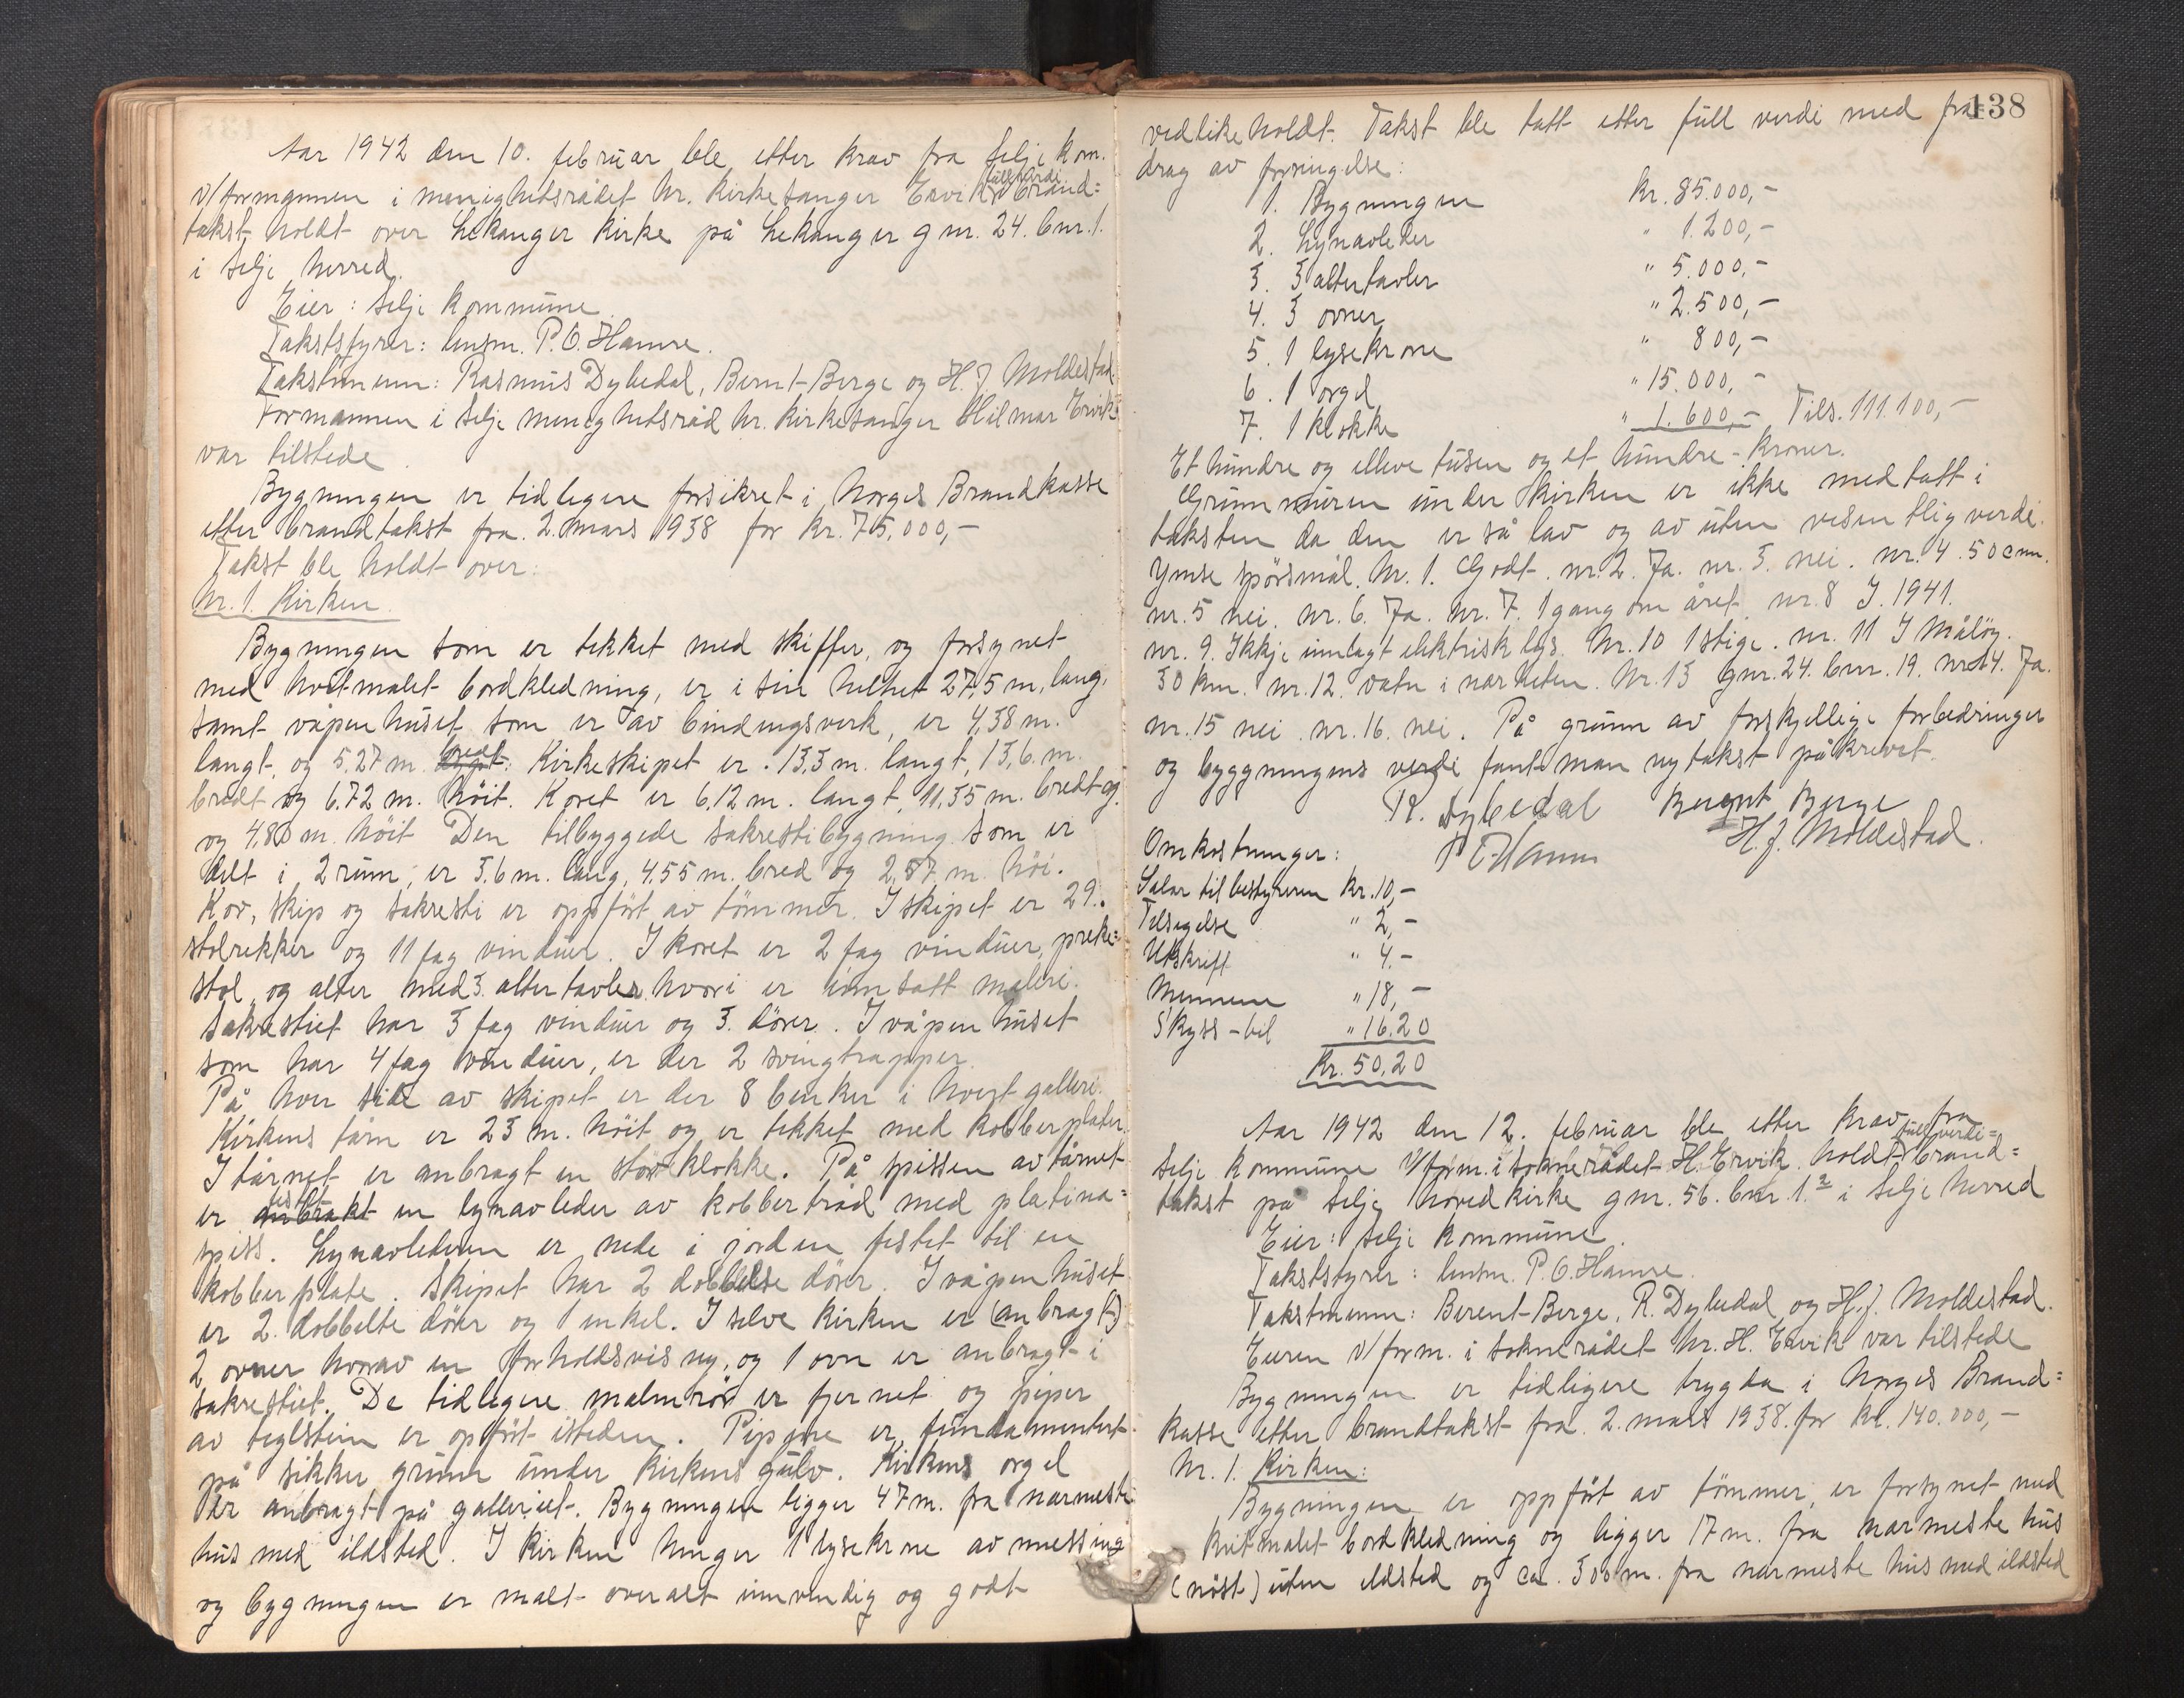 Aar 1942 den 10. februar ble etter krav fra Selje kom.
v/formannen i menighetsrådet hr. kirkesanger Ervik fullverdi brand=
takst holdt over Leikanger kirke på Leikanger gnr. 24. bnr. 1.
i Selje herred.
Eier: Selje kommune
Takststyrer: lensm. P. O. Hamre.
Takstmenn: Rasmus Dybedal, Bernt Berge og H. J. Moldestad
Formannen i Selje menighetsråd hr. kirkesanger Hilmar Ervik
var tilstede.
Bygningen er tidlegere forsikret i Norges Brandkasse
etter brandtakst fra 2. mars 1938 for kr. 75.000,-
Takst ble holdt over:
Nr. 1. Kirken.
Bygningen som er tekket med skiffer, og forsynet
med hvitmalet bordkledning, er i sin helhet 27,5 m. lang,
samt våpenhuset som er av bindingsverk, er 4,38 m.
langt, og 5,27 m. bredt. Kirkeskipet er 13,3 m. langt, 13,6 m.
bredt og 6,72 m. høit. Koret er 6,12 m. langt, 11,35 m. bredt og
og 4,80 m. høit Den tilbyggede sakrestibygning som er
delt i 2 rum, er 3,6 m. lang, 4,55 m. bred og 2,87 m. høi.
Kor, skip og sakresti er oppført av tømmer. I skipet er 29
stolrekker og 11 fag vinduer. I koret er 2 fag vinduer, preke=
stol og alter med 3 altertavler hvori er innsatt maleri.
Sakrestiet har 3 fag vinduer og 3. dører. I våpenhuset
som har 4 fag vinduer, er der 2 svingtrapper.
På hver side av skipet er der 8 benker i hvert galleri.
Kirkens tårn er 23 m. høit og er tekket med kobberplater.
I tårnet er anbragt en stor klokke. På spissen av tårnet
er anbrakt festet en lynavleder av kobbertråd med platina=
spiss. Lynavlederen er nede i jorden festet til en
kobberplate. Skipet har 2 dobbelte dører. I våpenhuset
er 2 dobbelte dører og 1 enkel. I selve kirken er (anbragt)
2 ovner hvorav en forholdsvis ny, og 1 ovn er anbragt i
sakrestiet. De tidlegere malmrør er fjernet og piper
av teglstein er opført isteden. Pipene er fundamentert
på sikker grunn under kirkens gulv. Kirkens orgel
er anbragt på galleriet. Bygningen ligger 47 m. fra nærmeste
hus med ildsted. I kirken henger 1 lysekrone av messing
og bygningen er malt overalt innvendig og godt
138
vedlikeholdt. Takst ble tatt etter full verdi med fra=
drag av forringelse:
1. Bygningen kr. 85.000,-
2. Lynavleder " 1.200,-
3. 3 altertavler " 5.000,-
4. 3 ovner " 2.500,-
5. 1 lysekrone " 800,-
6. 1 orgel " 15.000,-
7. 1 klokke " 1.600,- Tils. 111.100,-
Et hundre og elleve tusen og et hundre - kroner.
Grunnmuren under kirken er ikke medtatt i
taksten da den er så lav og av uten vesentlig verdi.
Ymse spørsmål. Nr. 1. Godt. nr. 2. Ja. nr. 3. nei. nr. 4. 50 cm.
nr. 5 nei. nr. 6. Ja. nr. 7. 1 gang om året. nr. 8 I. 1941.
nr. 9. Ikkje innlagt elektrisk lys. Nr. 10 1 stige. nr. 11 I Måløy.
30 km. nr. 12. vatn i nærheten. Nr. 13 gnr. 24. bnr. 19. nr. 14. Ja.
nr. 15 nei. nr. 16. nei. På grunn av forskjellige forbedringer
og byggningens verdi fant man ny takst påkrevet.
R. Dybedal Berent Berge
P O Hamre H. J. Moldestad.
Omkostninger:
Salær til bestyreren kr. 10,-
Tilsigelse " 2,-
Utskrift " 4.-
Mennene " 18,-
Skyss-bil " 16.20
Kr. 50,20
Aar 1942 den 12. februar ble etter krav fra
Selje kommune v/form. i sokneradet H. Ervik holdt fullverdi= brand=
takst på Selje hovedkirke gnr. 56. bnr. 1.2 i Selje herred
Eier: Selje kommune.
Takststyrer: lensm. P. O. Hamre.
Takstmenn: Berent Berge, R. Dybedal og H. J. Moldestad.
Eieren v/form. i soknerådet hr. H. Ervik var tilstede
Bygningen er tidligere trygda i Norges Brand=
kasse etter brandtakst fra 2. mars 1938. for kr. 140.000,-
Nr. 1. Kirken:
Bygningen er oppført av tømmer, er forsynet med
kvitmalet bordkledning og ligger 17 m. fra nærmeste hus
(nøst) uten ildsted og ca. 300 m. fra nærmeste hus med ildsted